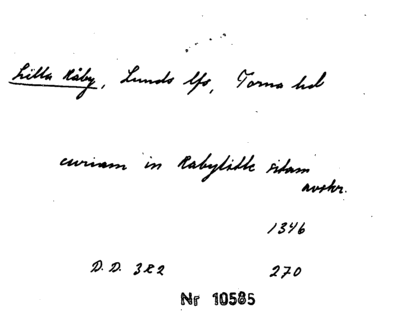 Lilla Råby, Lunds lfs, Torna hd
curiam in Rabylitle sitam
avskr.
1346
D. D. 3R2 270
Nr 10585